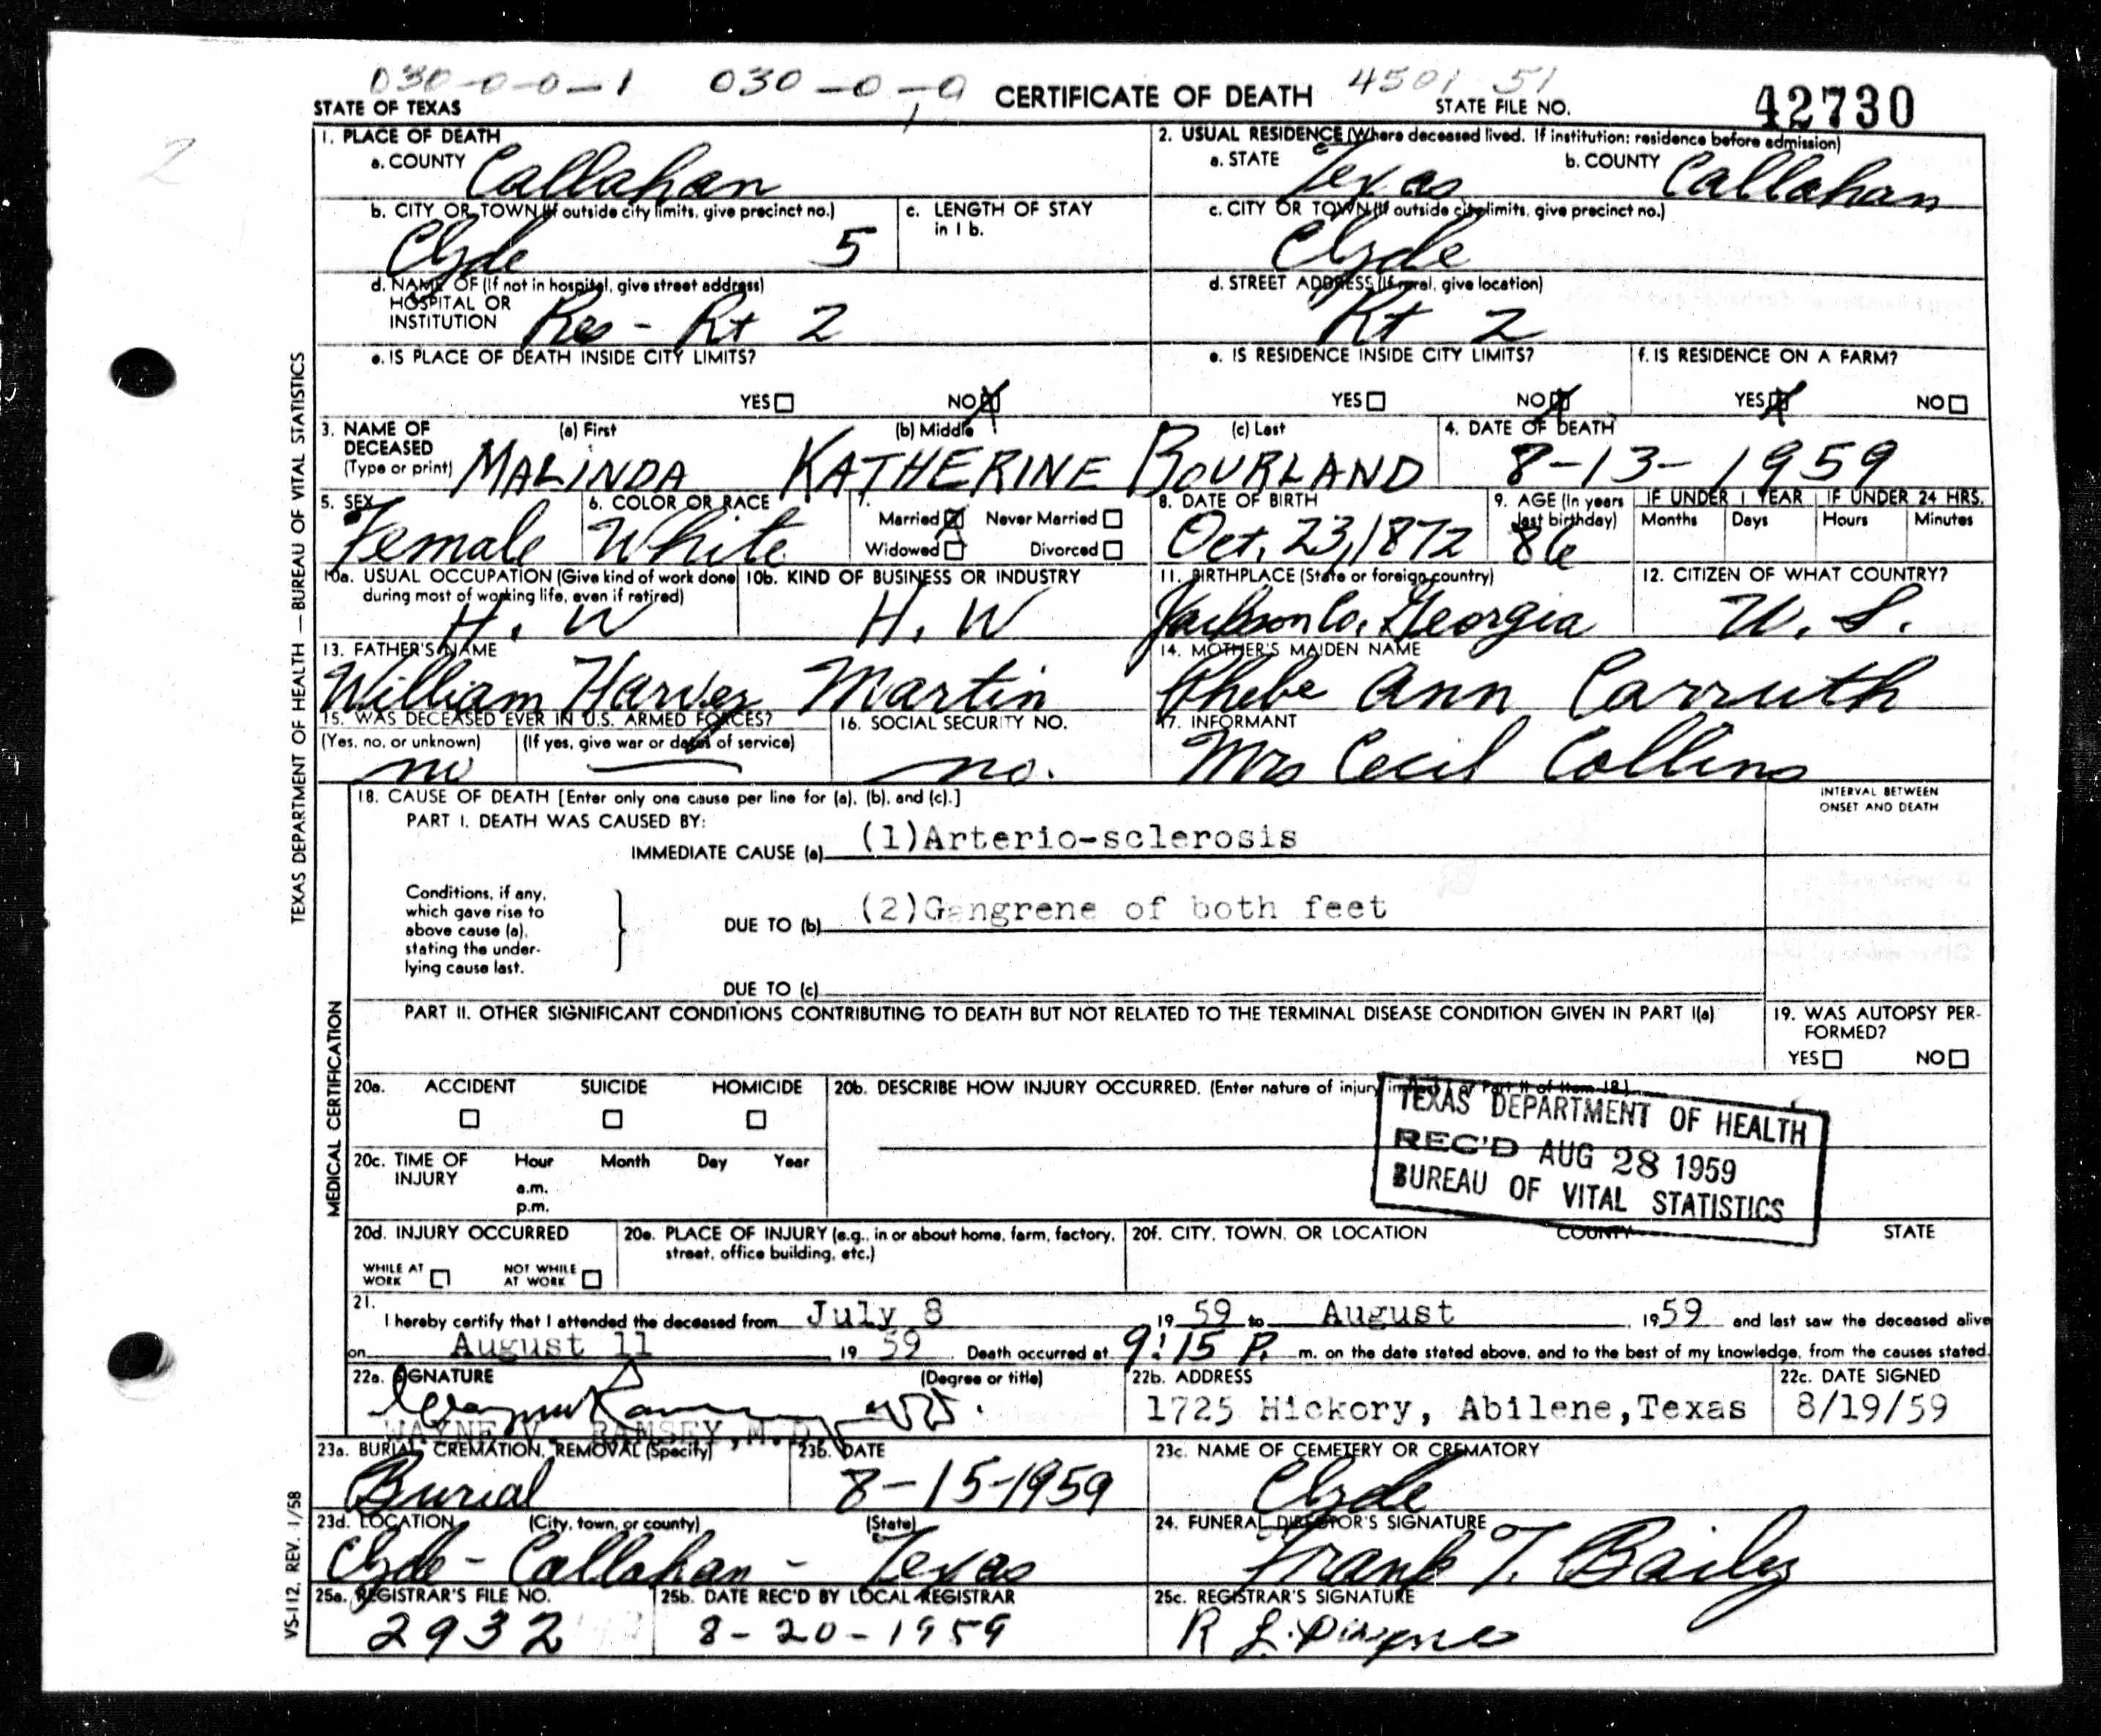 030-0-0-1 030-0-0 CERTIFICATE OF DEATH 4501 51
STATE OF TEXAS STATE FILE NO. 42730
1. PLACE OF DEATH
a. COUNTY Callahan
2. USUAL RESIDENCE (Where deceased lived. If institution: residence before admission)
a. STATE Texas b. COUNTY Callahan
b. CITY OR TOWN (If outside city limits, give precinct no.)
Clyde 5
c. LENGTH OF STAY
in 1 b.
c. CITY OR TOWN (If outside city limits, give precinct no.)
Clyde
d. NAME OF (If not in hospital, give street address)
HOSPITAL OR
INSTITUTION Res - Rt 2
d. STREET ADDRESS (If rural, give location)
Rt 2
e. IS PLACE OF DEATH INSIDE CITY LIMITS?
YES NO X
e. IS RESIDENCE INSIDE CITY LIMITS?
YES NO X
f. IS RESIDENCE ON A FARM?
YES X NO
3. NAME OF
DECEASED
(Type or print)
(a) First (b) Middle (c) Last
MALINDA KATHERINE BOURLAND
4. DATE OF DEATH
8-13-1959
5. SEX
Female
6. COLOR OR RACE
White
7.
Married X Never Married
Widowed Divorced
8. DATE OF BIRTH
Oct. 23, 1872
9. AGE (In years
last birthday)
86
IF UNDER 1 YEAR IF UNDER 24 HRS.
Months Days Hours Minutes
10a. USUAL OCCUPATION (Give kind of work done
during most of working life, even if retired)
H. W
10b. KIND OF BUSINESS OR INDUSTRY
H. W
11. BIRTHPLACE (State or foreign country)
Jackson Co, Georgia
12. CITIZEN OF WHAT COUNTRY?
U. S.
13. FATHER'S NAME
William Harvey Martin
14. MOTHER'S MAIDEN NAME
Phebe Ann Carruth
15. WAS DECEASED EVER IN U.S. ARMED FORCES?
(Yes, no, or unknown) (If yes, give war or dates of service)
no
16. SOCIAL SECURITY NO.
no.
17. INFORMANT
Mrs Cecil Collins
18. CAUSE OF DEATH [Enter only one cause per line for (a), (b), and (c).]
PART I. DEATH WAS CAUSED BY:
IMMEDIATE CAUSE (a) (1)Arterio-sclerosis
INTERVAL BETWEEN
ONSET AND DEATH
Conditions, if any,
which gave rise to
above cause (a),
stating the under-
lying cause last.
DUE TO (b) (2)Gangrene of both feet
DUE TO (c)
PART II. OTHER SIGNIFICANT CONDITIONS CONTRIBUTING TO DEATH BUT NOT RELATED TO THE TERMINAL DISEASE CONDITION GIVEN IN PART I(a)
19. WAS AUTOPSY PER-
FORMED?
YES NO
20a. ACCIDENT SUICIDE HOMICIDE
20b. DESCRIBE HOW INJURY OCCURRED. (Enter nature of injury in Part I or Part II of Item 18.)
TEXAS DEPARTMENT OF HEALTH
REC'D AUG 28 1959
BUREAU OF VITAL STATISTICS
20c. TIME OF
INJURY
Hour Month Day Year
a.m.
p.m.
20d. INJURY OCCURRED
WHILE AT
WORK
NOT WHILE
AT WORK
20e. PLACE OF INJURY (e.g., in or about home, farm, factory,
street, office building, etc.)
20f. CITY, TOWN, OR LOCATION COUNTY STATE
21.
I hereby certify that I attended the deceased from July 8 19 59 to August 1959 and last saw the deceased alive
on August 11 19 59 Death occurred at 9:15 P. m. on the date stated above, and to the best of my knowledge, from the causes stated.
22a. SIGNATURE (Degree or title)
Wayne V Ramsey MD.
WAYNE V. RAMSEY, M.D.
22b. ADDRESS
1725 Hickory, Abilene,Texas
22c. DATE SIGNED
8/19/59
23a. BURIAL, CREMATION, REMOVAL (Specify)
Burial
23b. DATE
8-15-1959
23c. NAME OF CEMETERY OR CREMATORY
Clyde
23d. LOCATION (City, town, or county) (State)
Clyde - Callahan - Texas
24. FUNERAL DIRECTOR'S SIGNATURE
Frank T. Bailey
25a. REGISTRAR'S FILE NO.
2932
25b. DATE REC'D BY LOCAL REGISTRAR
8-20-1959
25c. REGISTRAR'S SIGNATURE
R L.
TEXAS DEPARTMENT OF HEALTH — BUREAU OF VITAL STATISTICS
MEDICAL CERTIFICATION
VS-112, REV. 1/58
2